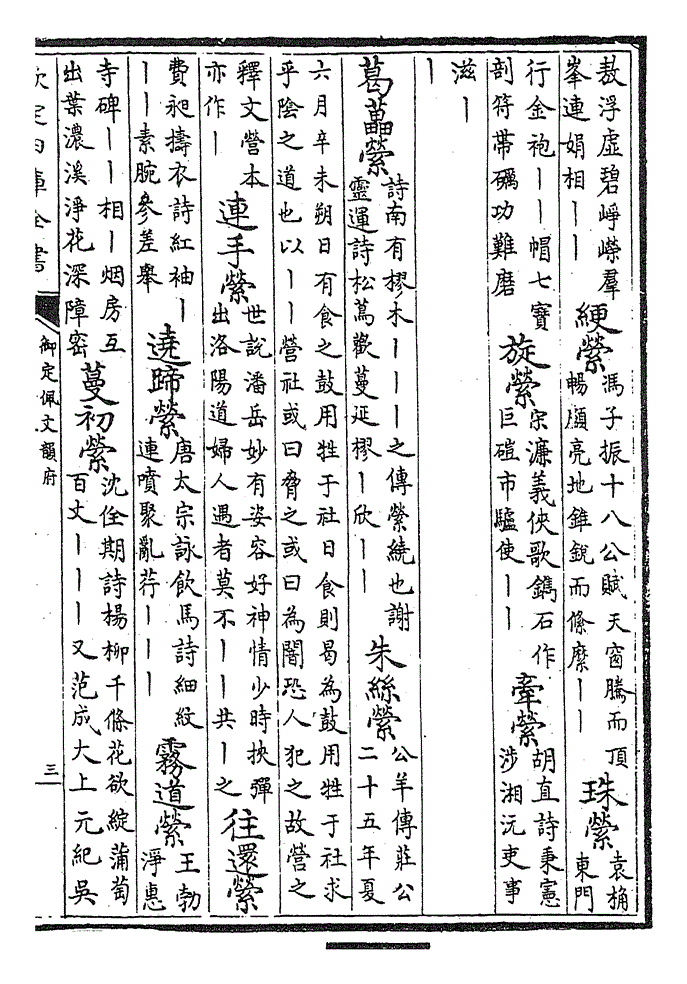 敖浮虛碧崢嶸羣
峯連娟相｜｜
綆縈
馮子振十八公賦天窗騰而頂
暢顱亮地錐銳而絛縻｜｜
珠縈
袁桷
東門
行金袍｜｜帽七寶
剖符帶礪功難磨
旋縈
宋濂義俠歌鐫石作
巨磑市驢使｜｜
牽縈
胡直詩秉憲
涉湘沅吏事
滋｜
｜
葛藟縈
詩南有樛木｜｜｜之傳縈繞也謝
靈運詩松蔦歡蔓延樛｜欣｜｜
朱絲縈
公羊傳莊公
二十五年夏
六月辛未朔日有食之鼓用牲于社日食則曷為鼓用牲于社求
乎陰之道也以｜｜營社或曰脅之或曰為闇恐人犯之故營之
釋文營本
亦作｜
連手縈
世說潘岳妙有姿容好神情少時挾彈
出洛陽道婦人遇者莫不｜｜共｜之
往還縈
費昶擣衣詩紅袖｜
｜｜素腕參差舉
遶蹄縈
唐太宗詠飲馬詩細紋
連噴聚亂荇｜｜｜
霧道縈
王勃
淨惠
寺碑｜｜相｜烟房互
出葉濃溪淨花深障密
蔓初縈
沈佺期詩楊柳千條花欲綻蒲萄
百丈｜｜｜又范成大上元紀吳
欽定四庫全書
御定佩文韻府
三